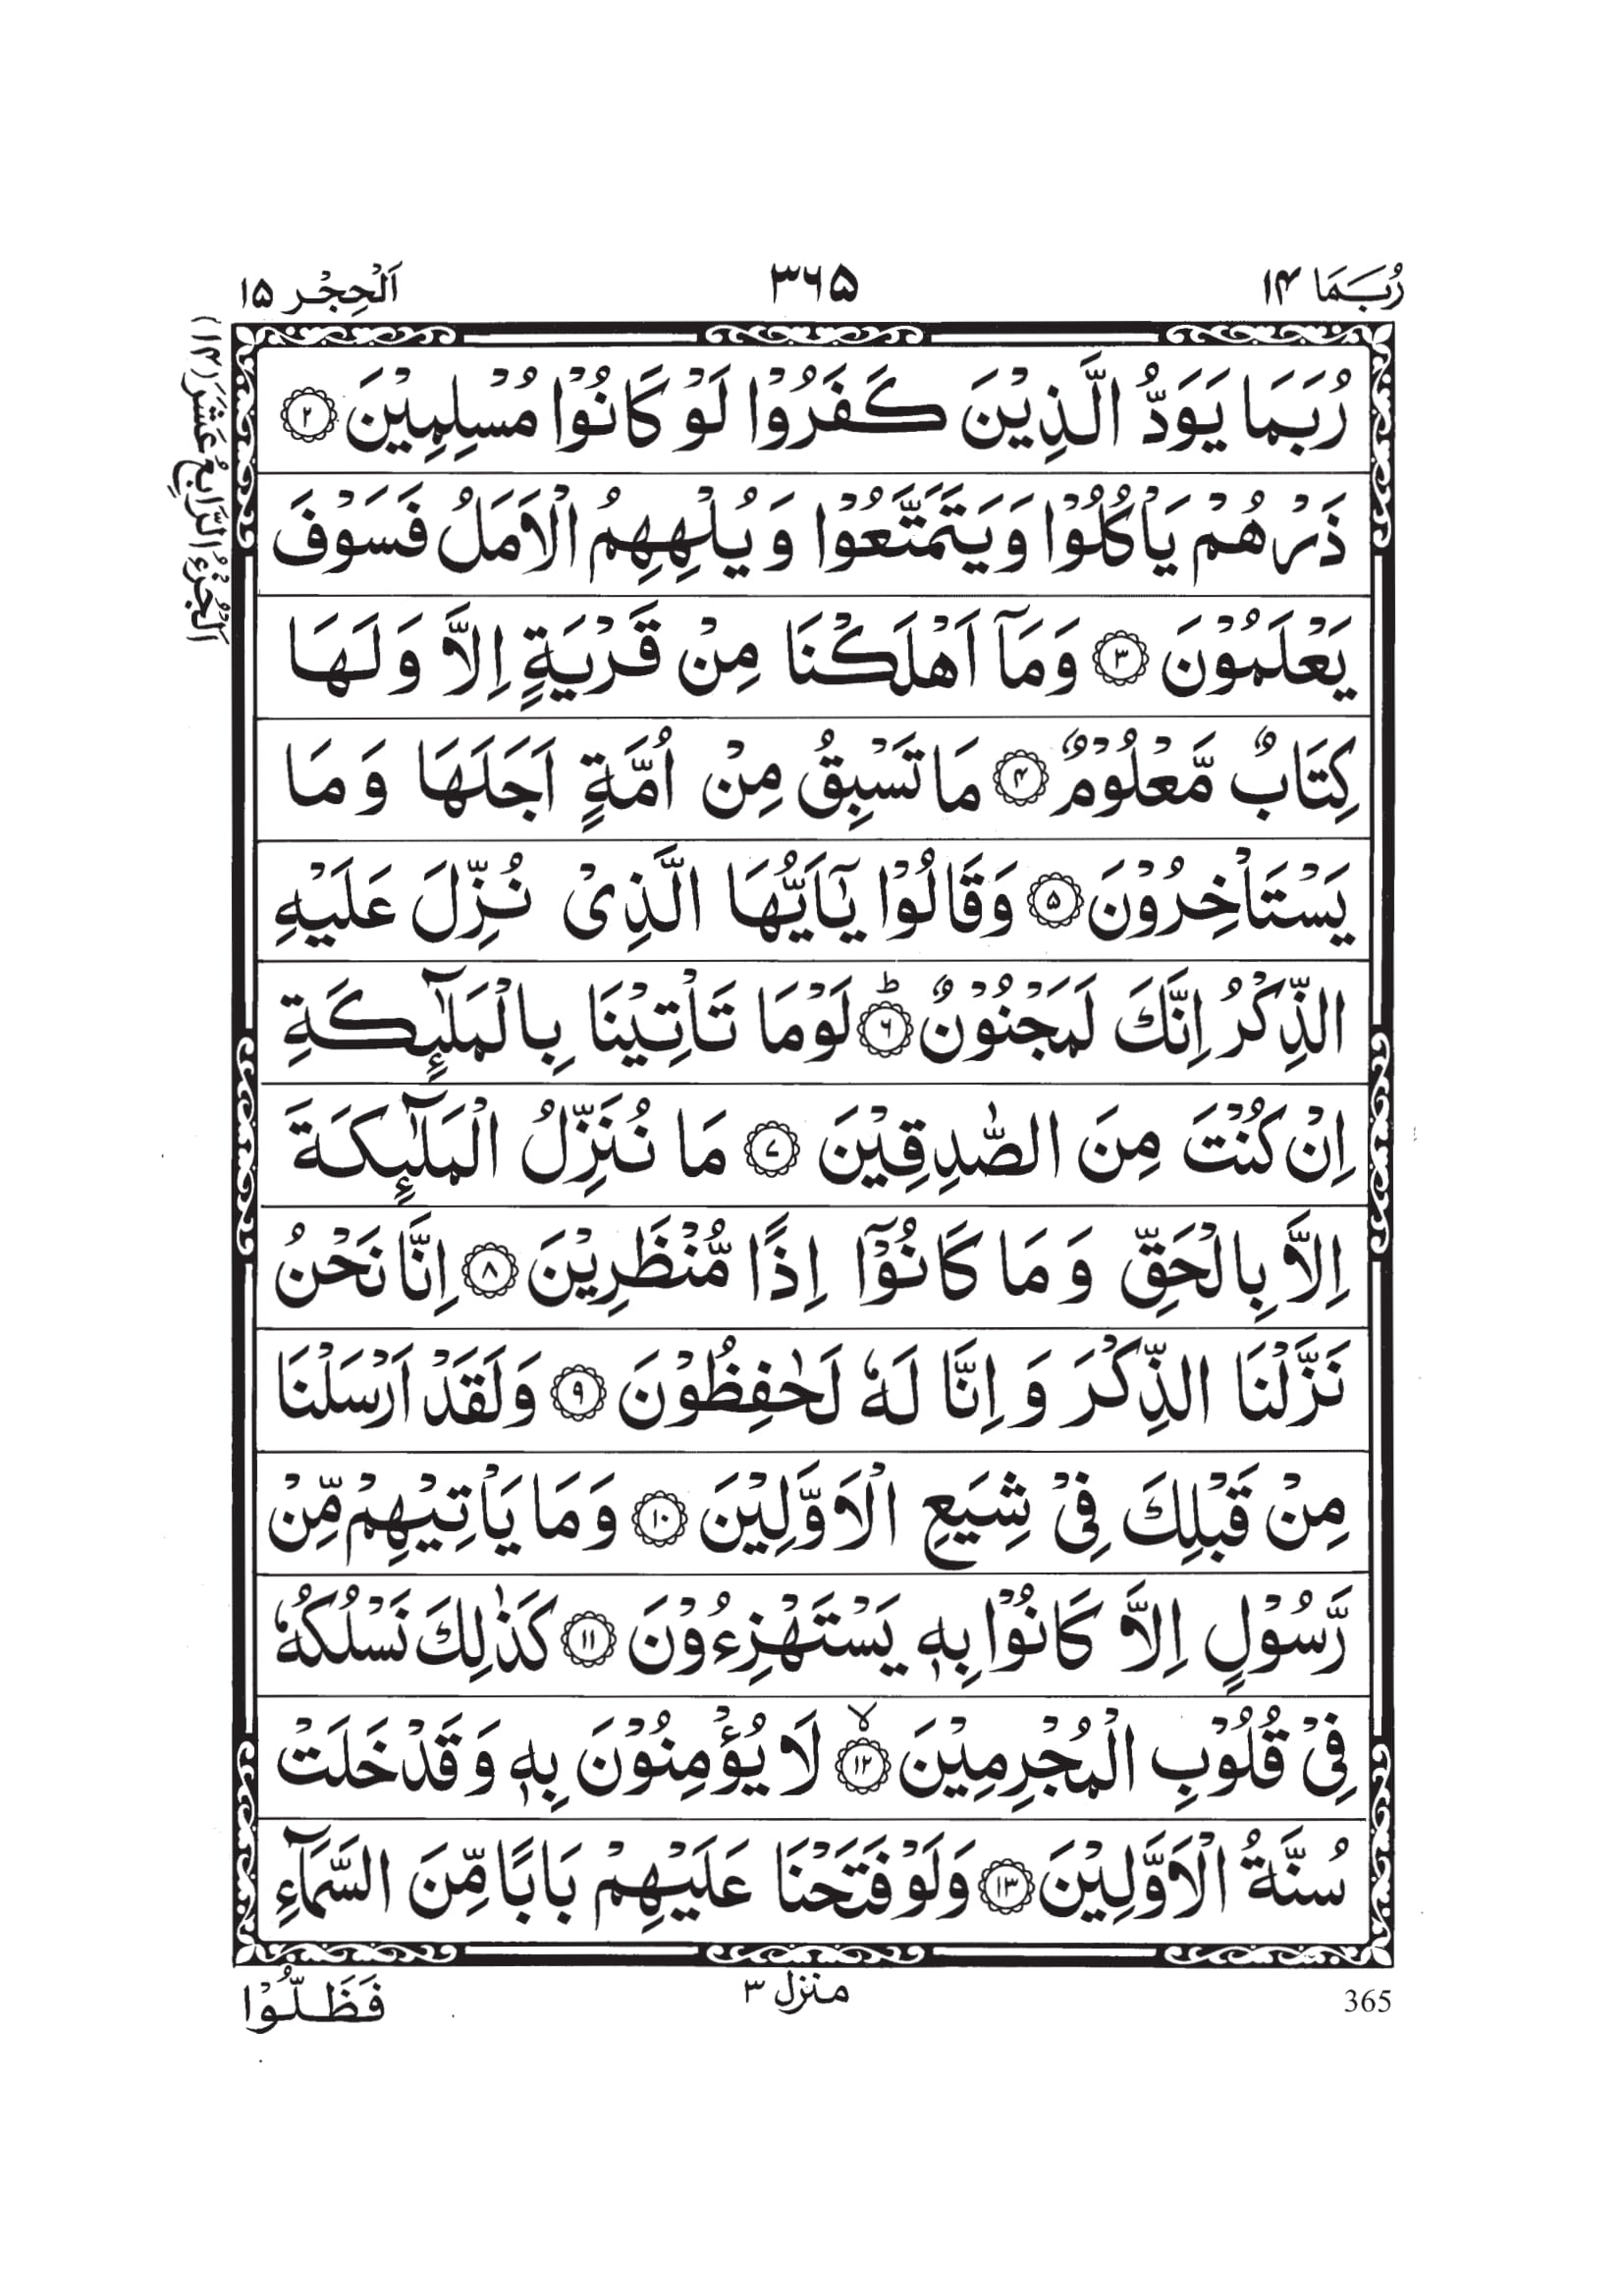 رُبَمَا ١٤
٣٦٥
اَلْحِجْر ١٥
اَلْجُزْءُ الرَّابِعُ عَشَرَ (١٤)
رُبَمَا يَوَدُّ الَّذِيْنَ كَفَرُوْا لَوْ كَانُوْا مُسْلِمِيْنَ ﴿٢﴾
ذَرْهُمْ يَاْكُلُوْا وَيَتَمَتَّعُوْا وَيُلْهِهِمُ الْاَمَلُ فَسَوْفَ
يَعْلَمُوْنَ ﴿٣﴾ وَمَآ اَهْلَكْنَا مِنْ قَرْيَةٍ اِلَّا وَلَهَا
كِتَابٌ مَّعْلُوْمٌ ﴿٤﴾ مَا تَسْبِقُ مِنْ اُمَّةٍ اَجَلَهَا وَمَا
يَسْتَاْخِرُوْنَ ﴿٥﴾ وَقَالُوْا يٰٓاَيُّهَا الَّذِىْ نُزِّلَ عَلَيْهِ
الذِّكْرُ اِنَّكَ لَمَجْنُوْنٌ ؕ﴿٦﴾ لَوْمَا تَاْتِيْنَا بِالْمَلٰٓئِكَةِ
اِنْ كُنْتَ مِنَ الصّٰدِقِيْنَ ﴿٧﴾ مَا نُنَزِّلُ الْمَلٰٓئِكَةَ
اِلَّا بِالْحَقِّ وَمَا كَانُوْٓا اِذًا مُّنْظَرِيْنَ ﴿٨﴾ اِنَّا نَحْنُ
نَزَّلْنَا الذِّكْرَ وَاِنَّا لَهٗ لَحٰفِظُوْنَ ﴿٩﴾ وَلَقَدْ اَرْسَلْنَا
مِنْ قَبْلِكَ فِىْ شِيَعِ الْاَوَّلِيْنَ ﴿١٠﴾ وَمَا يَاْتِيْهِمْ مِّنْ
رَّسُوْلٍ اِلَّا كَانُوْا بِهٖ يَسْتَهْزِءُوْنَ ﴿١١﴾ كَذٰلِكَ نَسْلُكُهٗ
فِىْ قُلُوْبِ الْمُجْرِمِيْنَ ۙ﴿١٢﴾ لَا يُؤْمِنُوْنَ بِهٖ وَقَدْ خَلَتْ
سُنَّةُ الْاَوَّلِيْنَ ﴿١٣﴾ وَلَوْ فَتَحْنَا عَلَيْهِمْ بَابًا مِّنَ السَّمَآءِ
365
منزل ٣
فَظَلُّوْا